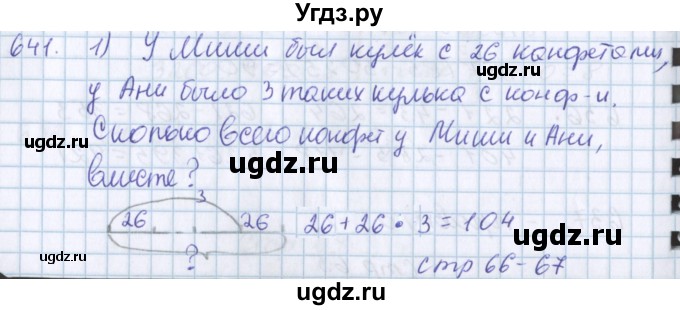 Угдз.ру
641. 1) У Миши был кулёк с 26 конфетами,
у Ани было 3 таких кулька с конф-и.
Сколько всего конфет у Миши и Ани,
ugdz.ru ugdz.ru
вместе?
3
26 26 26 + 26 • 3 = 104
?
стр 66-67
ugdz.ru ugdz.ru
ugdz.ru